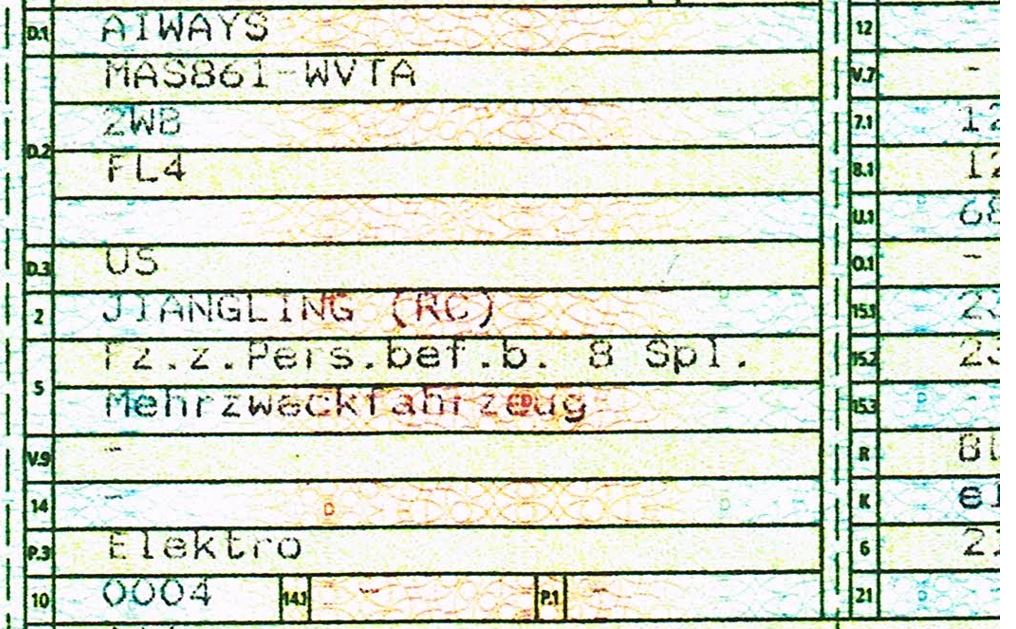 D.1 AIWAYS 12
MAS861-WVTA V.7 -
D.2 ZWB 7.1 12
FL4 8.1 12
U.1 68
D.3 US O.1 -
2 JIANGLING (RC) 15.1 23
5 Fz.z.Pers.bef.b. 8 Spl. 15.2 23
Mehrzweckfahrzeug 15.3 -
V.9 - R
14 - K el
P.3 Elektro 6 21
10 0004 14.1 - P.1 - 21